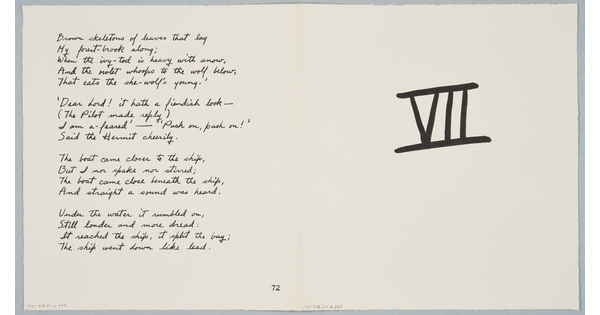 Brown skeletons of leaves that lag
My forest-brook along;
When the ivy-tod is heavy with snow,
And the owlet whoops to the wolf below,
That eats the she-wolf's young.'
'Dear Lord! it hath a fiendish look—
(The Pilot made reply)
I am a-feared'— 'Push on, push on!'
Said the Hermit cheerily.
The boat came closer to the ship,
But I nor spake nor stirred;
The boat came close beneath the ship,
And straight a sound was heard.
Under the water it rumbled on,
Still louder and more dread:
It reached the ship, it split the bay;
The ship went down like lead.
72
VII